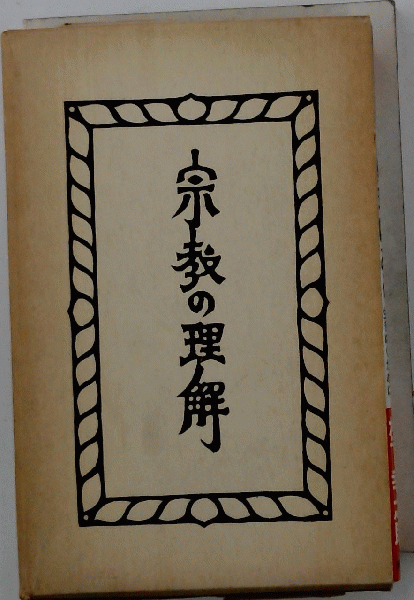 宗教の理解